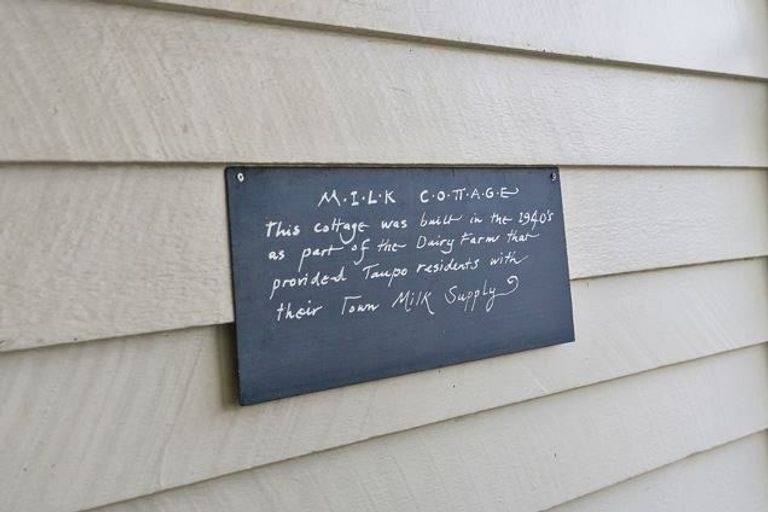 M·I·L·K C·O·T·T·A·G·E
This cottage was built in the 1940's
as part of the Dairy Farm that
provided Taupo residents with
their Town Milk Supply